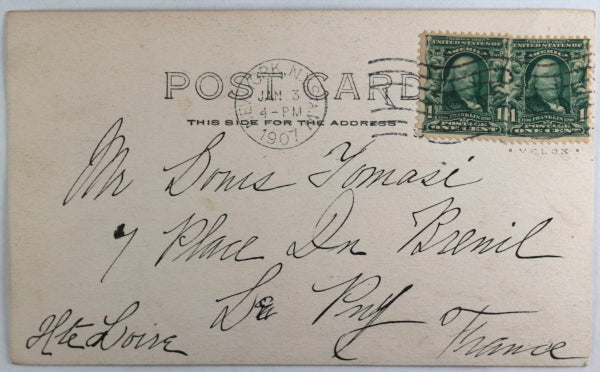 POST CARD
THIS SIDE FOR THE ADDRESS
NEWARK, N.J. STA.
JAN 3
4-PM
1907
UNITED STATES OF
AMERICA
FRANKLIN
1 ONE CENT 1
UNITED STATES OF
AMERICA
FRANKLIN
1 ONE CENT 1
VELOX
Mr Louis Tomasi
7 Place Du Breuil
Le Puy
Hte Loire France